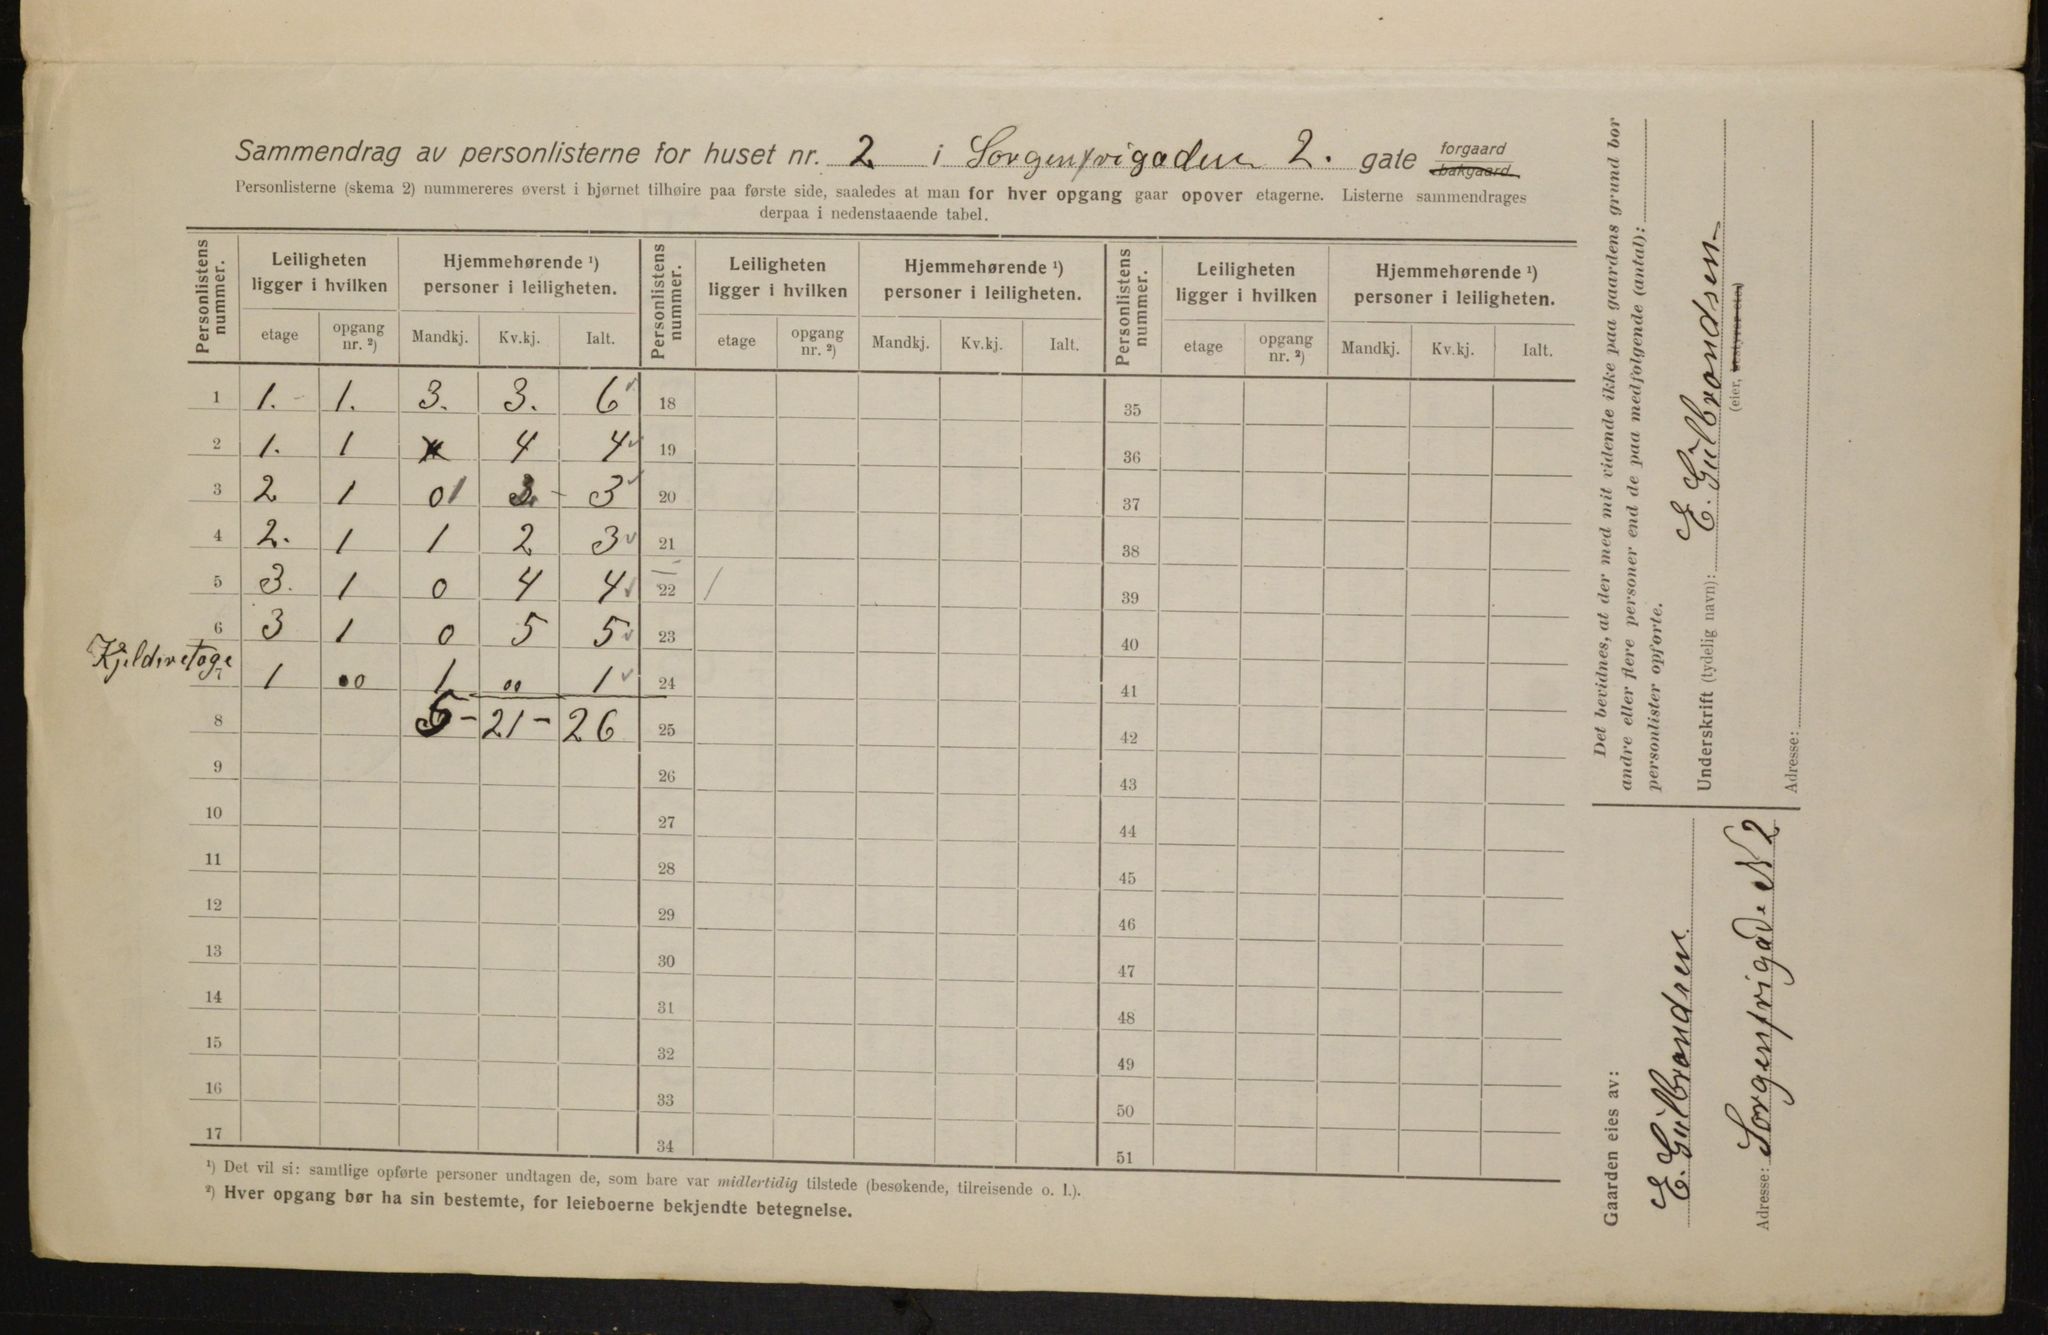 Sammendrag av personlisterne for huset nr. 2 i Sorgenfrigaden 2. gate forgaard bakgaard.
Personlisterne (skema 2) nummereres øverst i hjørnet tilhøire paa første side, saaledes at man for hver opgang gaar opover etagerne. Listerne sammendrages
derpaa i nedenstaaende tabel.
Personlistens nummer. Leiligheten ligger i hvilken Hjemmehørende ¹) personer i leiligheten. Personlistens nummer. Leiligheten ligger i hvilken Hjemmehørende ¹) personer i leiligheten. Personlistens nummer. Leiligheten ligger i hvilken Hjemmehørende ¹) personer i leiligheten.
etage opgang nr. ²) Mandkj. Kv.kj. Ialt. etage opgang nr. ²) Mandkj. Kv.kj. Ialt. etage opgang nr. ²) Mandkj. Kv.kj. Ialt.
1 1. 1. 3. 3. 6 18 35
2 1. 1 4 4 19 36
3 2 1 01 3 20 37
4 2. 1 1 2 3 21 38
5 3. 1 0 4 4 22 / 39
6 3 1 0 5 5 23 40
Kjelderetage 7 1 00 1 00 1 24 41
8 5 - 21 - 26 25 42
9 26 43
10 27 44
11 28 45
12 29 46
13 30 47
14 31 48
15 32 49
16 33 50
17 34 51
¹) Det vil si: samtlige opførte personer undtagen de, som bare var midlertidig tilstede (besøkende, tilreisende o. l.).
²) Hver opgang bør ha sin bestemte, for leieboerne bekjendte betegnelse.
Det bevidnes, at der med mit vidende ikke paa gaardens grund bor
andre eller flere personer end de paa medfolgende (antal):
personlister opførte.
Underskrift (tydelig navn): E. Gülbrandsen
(eier, bestyrer etc.)
Adresse:
Gaarden eies av:
E. Gülbrandsen
Adresse: Sorgenfrigade N 2